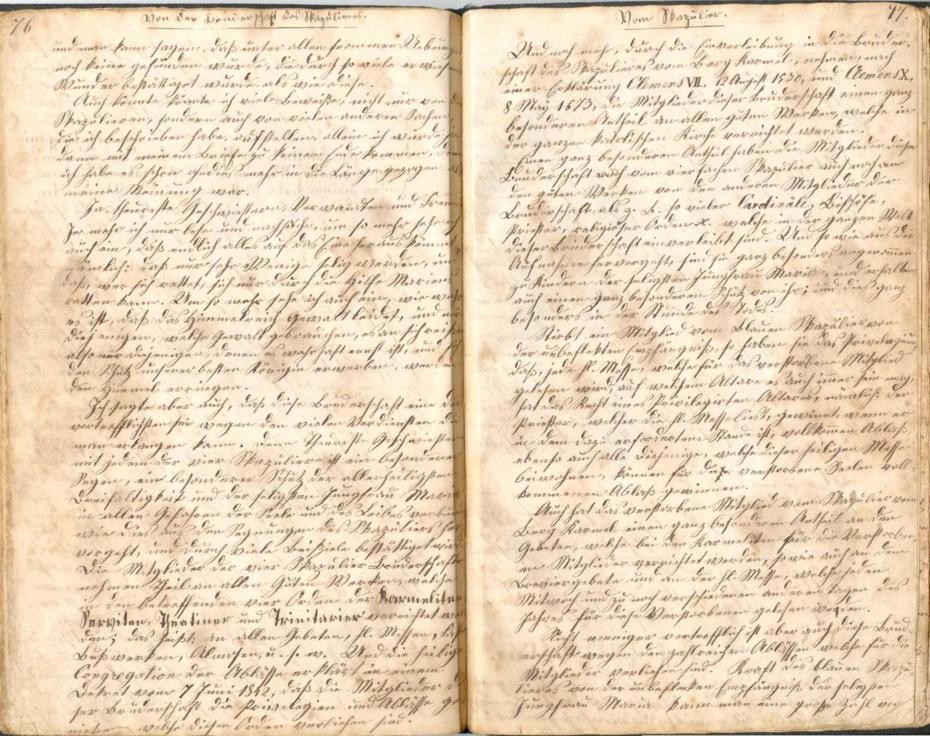 76
Von der Bruderschaft des Skapuliers.
und man kann sagen, daß unter allen frommen Uebung
noch keine gefunden wurde, die durch so viele
Wunder bestättiget wurde als wie diese.
Auch könnte ich viele Beweise, nicht nur von
Skapulieren, sondern auch von vielen anderen Sachen,
die ich beschrieben habe, aufstellen, allein ich würde
dann mit meinem Briefe zu keinem Ende kommen,
ich habe es schon gedies mehr in die Länge gezogen
meine Meinung war.
Ja, theureste Geschwistern, Verwandten und
Je mehr ich nur lese und nachsuche, um so mehr sehe
auch ein, daß endlich alles auf das Eine heraus kömmt
nämlich: daß nur sehr Wenige selig werden, und
daß, wer sich rettet, sich nur durch die Hilfe Mariens
retten kann. Um so mehr sehe ich auch ein, wie wahr
es ist, daß das Himmelreich Gewalt leidet, und nur
diejenigen, welche Gewalt gebrauchen, es an sich
also nur diejenigen, denen es wahrhaft ernst ist, und
den Schutz unserer besten Königin erwerben, werden
den Himmel erringen.
Ich sagte aber auch, daß diese Bruderschaft eine der
vortrefflichsten sei wegen den vielen Verdiensten die
man erlangen kann. Denn theureste Geschwistern
mit jedem der vier Skapuliere ist ein besonderer
Segen, ein besonderer Schutz der allerheiligsten
Dreifaltigkeit und der seligsten Jungfrau Maria
in allen Gefahren der Seele und des Leibes
wie dies aus den Segnungen des Skapuliers
vorgeht, und durch viele Beispiele bestättiget wird
Die Mitglieder der vier Skapulier Bruderschaft
nehmen Theil an allen Guten Werken, welche
in den betreffenden vier Orden der Karmeliten
Serviten, Theatiner und Trinitarier verrichtet
den; das heißt: an allen Gebeten, hl. Messen,
Bußwerken, Almosen, u. s. w. Und die heilige
Congregation der Ablässe erklärt in einem
Dekret vom 7 Juni 1842, daß die Mitglieder
ser Bruderschaft die Privilegien und Ablässe
welche diesen Orden verliehen sind.
77.
Vom Skapulier.
Und noch mehr, durch die Einverleibung in die Bruder-
schaft des Skapulieres vom Berg Karmel, nehmen, nach
einer Erklärung Clemens VII, 12 August 1530, und Clemens X,
8 May 1673, die Mitglieder dieser Bruderschaft einen ganz
besonderen Antheil an allen guten Werken, welche in
der ganzen katolischen Kirche verrichtet werden.
Einen ganz besonderen Antheil haben die Mitglieder dieser
Bruderschaft auch vom vierfachen Skapulier auch noch an
den guten Werken von den anderen Mitglieder der
Bruderschaft, als z. B. so vieler Cardinäle, Bischöfe,
Priester, religiöser Orden x. welche in der ganzen Welt
dieser Bruderschaft einverleibt sind. Und so wie aus der
Aufnahme hervorgeht, sind sie ganz besonders angenommen
zu Kindern der seligsten Jungfrau Maria, und erhalten
auch einen ganz besonderen Schutz von ihr; und dies ganz
besonders in der Stunde des Todes.
Stirbt ein Mitglied vom Blauen Skapulier von
der unbefleckten Empfängniß, so haben sie das Privilegium
daß, jede hl. Messe, welche für das verstorbene Mitglied
gelesen wird, auf welchem Altare es auch immer sein mag,
hat das Recht eines Privilegirten Altares, nämlich: der
Priester, welcher die hl. Messe ließt, gewinnt, wenn er
in dem dazu erforderten Stande ist, vollkommen Ablaß
ebenso auch alle diejenige, welche dieser heiligen Messe
beiwohnen, können für diese verstorbene Seelen voll-
kommenen Ablaß gewinnen.
Auch hat das verstorbene Mitglied vom Skapulier vom
Berg Karmel einen ganz besonderen Antheil an den
Gebeten, welche bei den Karmeliten für die Verstorbe-
nen Mitglieder verrichtet werden, so wie auch an dem
Breviergebete und an der hl. Messe, welche jeden
Mitwoch und zu noch verschiedenen anderen Tagen des
Jahres für diese Verstorbenen gelesen werden.
Nicht weniger vortrefflich ist aber auch diese Brud-
erschaft wegen den zahlreichen Ablässen welche für die
Mitglieder verliehen sind. Kraft des blauen Skapu-
lieres von der unbefleckten Empfängniß der seligsten
Jungfrau Maria kann man eine große Zahl von